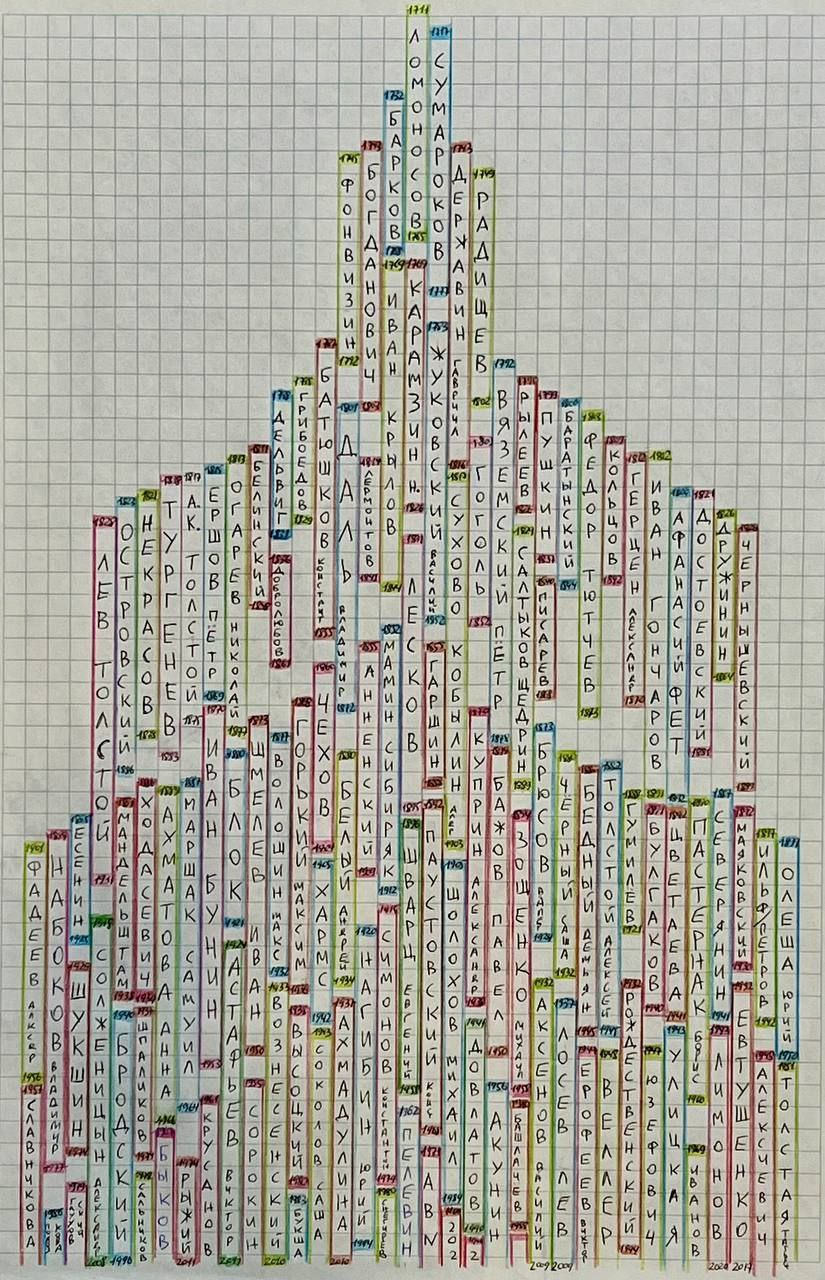 1711
ЛОМОНОСОВ
1765
1717
СУМАРОКОВ
1777
1732
БАРКОВ
1768
1743
БОГДАНОВИЧ
1803
1745
ФОНВИЗИН
1792
1743
ДЕРЖАВИН ГАВРИИЛ
1816
1749
РАДИЩЕВ
1802
1769
ИВАН КРЫЛОВ
1844
КАРАМЗИН Н.
1826
1783
ЖУКОВСКИЙ ВАСИЛИЙ
1852
1787
БАТЮШКОВ КОНСТАНТ
1855
ГРИБОЕДОВ
1829
ДЕЛЬВИГ
1831
1801
ДАЛЬ ВЛАДИМИР
1872
1814
ЛЕРМОНТОВ
1841
1817
СУХОВО КОБЫЛИН АЛЕР
1903
ГОГОЛЬ
1852
1792
ВЯЗЕМСКИЙ ПЁТР
1878
РЫЛЕЕВ
1826
1799
ПУШКИН
1837
1800
БАРАТЫНСКИЙ
1844
1803
ФЕДОР ТЮТЧЕВ
1873
1809
КОЛЬЦОВ
1842
1812
ГЕРЦЕН АЛЕКСАНДР
1870
1812
ИВАН ГОНЧАРОВ
1891
АФАНАСИЙ ФЕТ
1892
1821
ДОСТОЕВСКИЙ
1881
ДРУЖИНИН
1864
ЧЕРНЫШЕВСКИЙ
1811
БЕЛИНСКИЙ
1813
ОГАРЕВ НИКОЛАЙ
1877
1815
ЕРШОВ ПЁТР
1869
1817
А.К. ТОЛСТОЙ
1875
1818
ТУРГЕНЕВ
1883
1821
НЕКРАСОВ
1878
1823
ОСТРОВСКИЙ
1886
1828
ЛЕВ ТОЛСТОЙ
1836
ДОБРОЛЮБОВ
1861
1831
ЛЕСКОВ
1895
1826
САЛТЫКОВ ЩЕДРИН
1889
1840
ПИСАРЕВ
1868
1852
МАМИН СИБИРЯК
1912
1855
АННЕНСКИЙ
1909
ГАРШИН
1888
1860
ЧЕХОВ
1904
1868
ГОРЬКИЙ МАКСИМ
1936
1870
ИВАН БУНИН
1953
1873
ШМЕЛЕВ ИВАН
1950
1877
ВОЛОШИН МАКС
1932
1880
БЛОК
1921
1880
БЕЛЫЙ АНДРЕЙ
1934
1870
КУПРИН АЛЕКСАНДР
1938
1879
БАЖОВ ПАВЕЛ
1950
1873
БРЮСОВ ВАЛЕР
1924
1880
ЧЁРНЫЙ САША
1932
БЕДНЫЙ ДЕМЬЯН
1945
1882
ТОЛСТОЙ АЛЕКСЕЙ
1945
1886
ГУМИЛЕВ
1921
1891
БУЛГАКОВ
1940
1892
ЦВЕТАЕВА
1941
1890
ПАСТЕРНАК БОРИС
1960
1887
СЕВЕРЯНИН
1941
МАЯКОВСКИЙ
1930
1897
ИЛЬФ/ПЕТРОВ
1942
1899
ОЛЕША ЮРИЙ
МАРШАК САМУИЛ
1964
1889
АХМАТОВА АННА
1966
1886
ХОДАСЕВИЧ
МАНДЕЛЬШТАМ
1938
1895
ЕСЕНИН
1925
НАБОКОВ ВЛАДИМИР
1977
1901
ФАДЕЕВ АЛКСНДР
1956
1896
ШВАРЦ ЕВГЕНИЙ
1958
1892
ПАУСТОВСКИЙ КОНС
1968
1905
ШОЛОХОВ МИХАИЛ
1984
ЗОЩЕНКО МИХАИЛ
1958
1905
ХАРМС
1942
1915
СИМОНОВ КОНСТАНТИН
1979
1920
НАГИБИН ЮРИЙ
1994
СОЛЖЕНИЦЫН АЛЕКСАНДР
2008
1929
ШУКШИН
1974
1924
АСТАФЬЕВ ВИКТОР
1933
ВОЗНЕСЕНСКИЙ
2010
1937
АХМАДУЛИНА
2010
1938
ВЫСОЦКИЙ
1980
1943
СОКОЛОВ САША
1932
АКСЕНОВ ВАСИЛИЙ
2009
1937
ЛОСЕВ ЛЕВ
2009
РОЖДЕСТВЕНСКИЙ
1994
1932
ЕВТУШЕНКО
2017
1937
ЛИМОНОВ
2020
1943
УЛИЦКАЯ
1947
ЮЗЕФОВИЧ
1948
ВЕЛЛЕР
ЕРОФЕЕВ ВИКТР
1948
АЛЕКСИЕВИЧ
1951
ТОЛСТАЯ ТАТЬЯ
1969
ИВАНОВ
1941
ДОВЛАТОВ
1990
1956
АКУНИН
1960
БАШЛАЧЕВ
1988
1962
ПЕЛЕВИН
1980
СНЕГИРЕВ
1983
БУКША
1955
СОРОКИН
1961
КРУСАНОВ
1974
РЫЖИЙ
БЫКОВ
1937
ШПАЛИКОВ
1974
1978
САЛЬНИКОВ
1940
БРОДСКИЙ
1996
1957
СЛАВНИКОВА